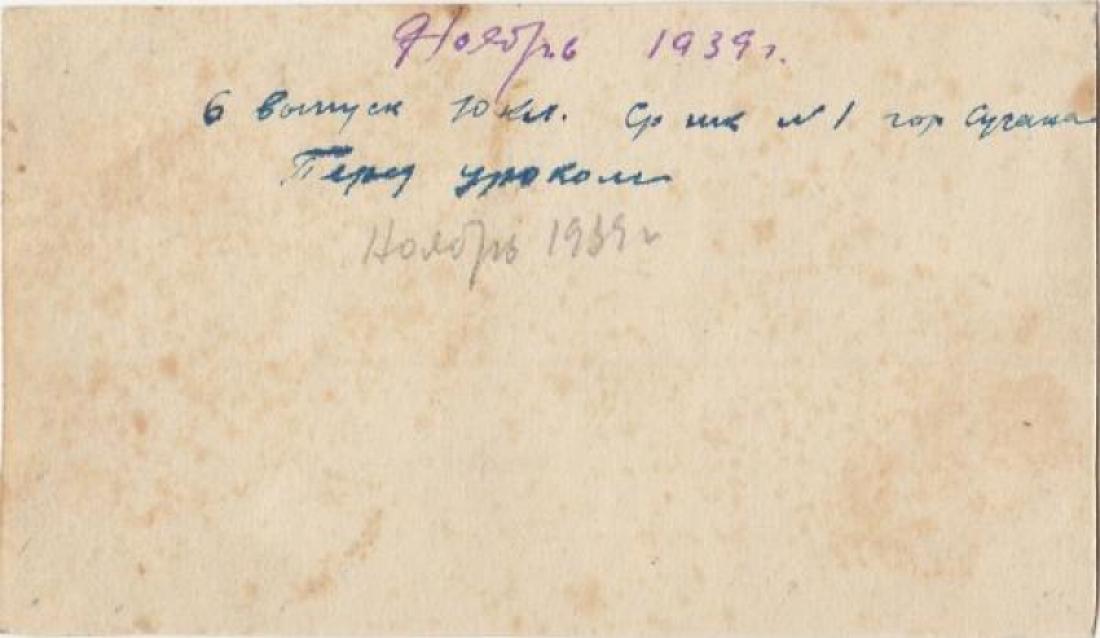 Ноябрь 1939 г.
6 выпуск 10 кл. Ср шк № 1 гор Сучана
Перед уроком
Ноябрь 1939 г